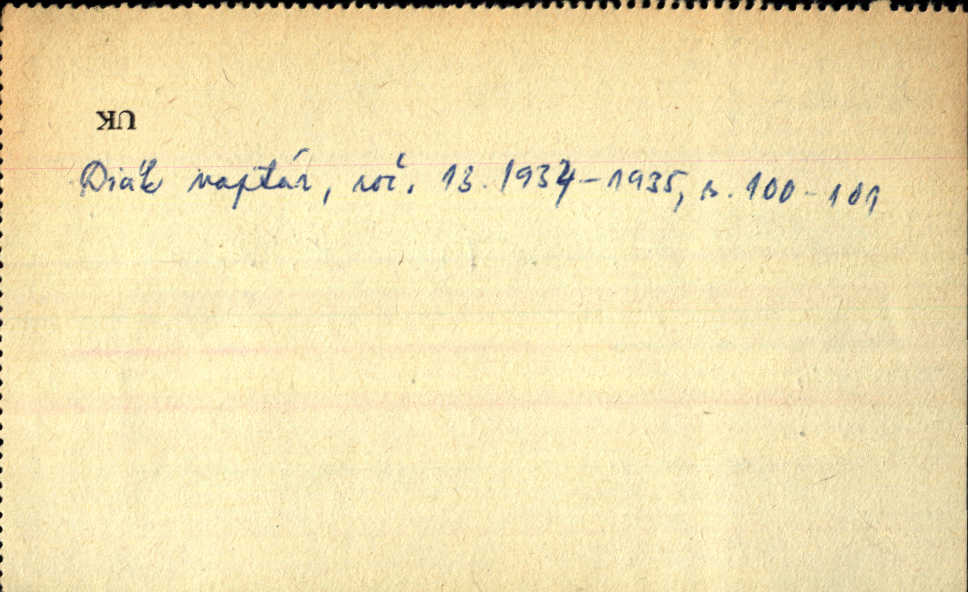 UK
Diák naptár, roč. 13. 1934-1935, s. 100-101